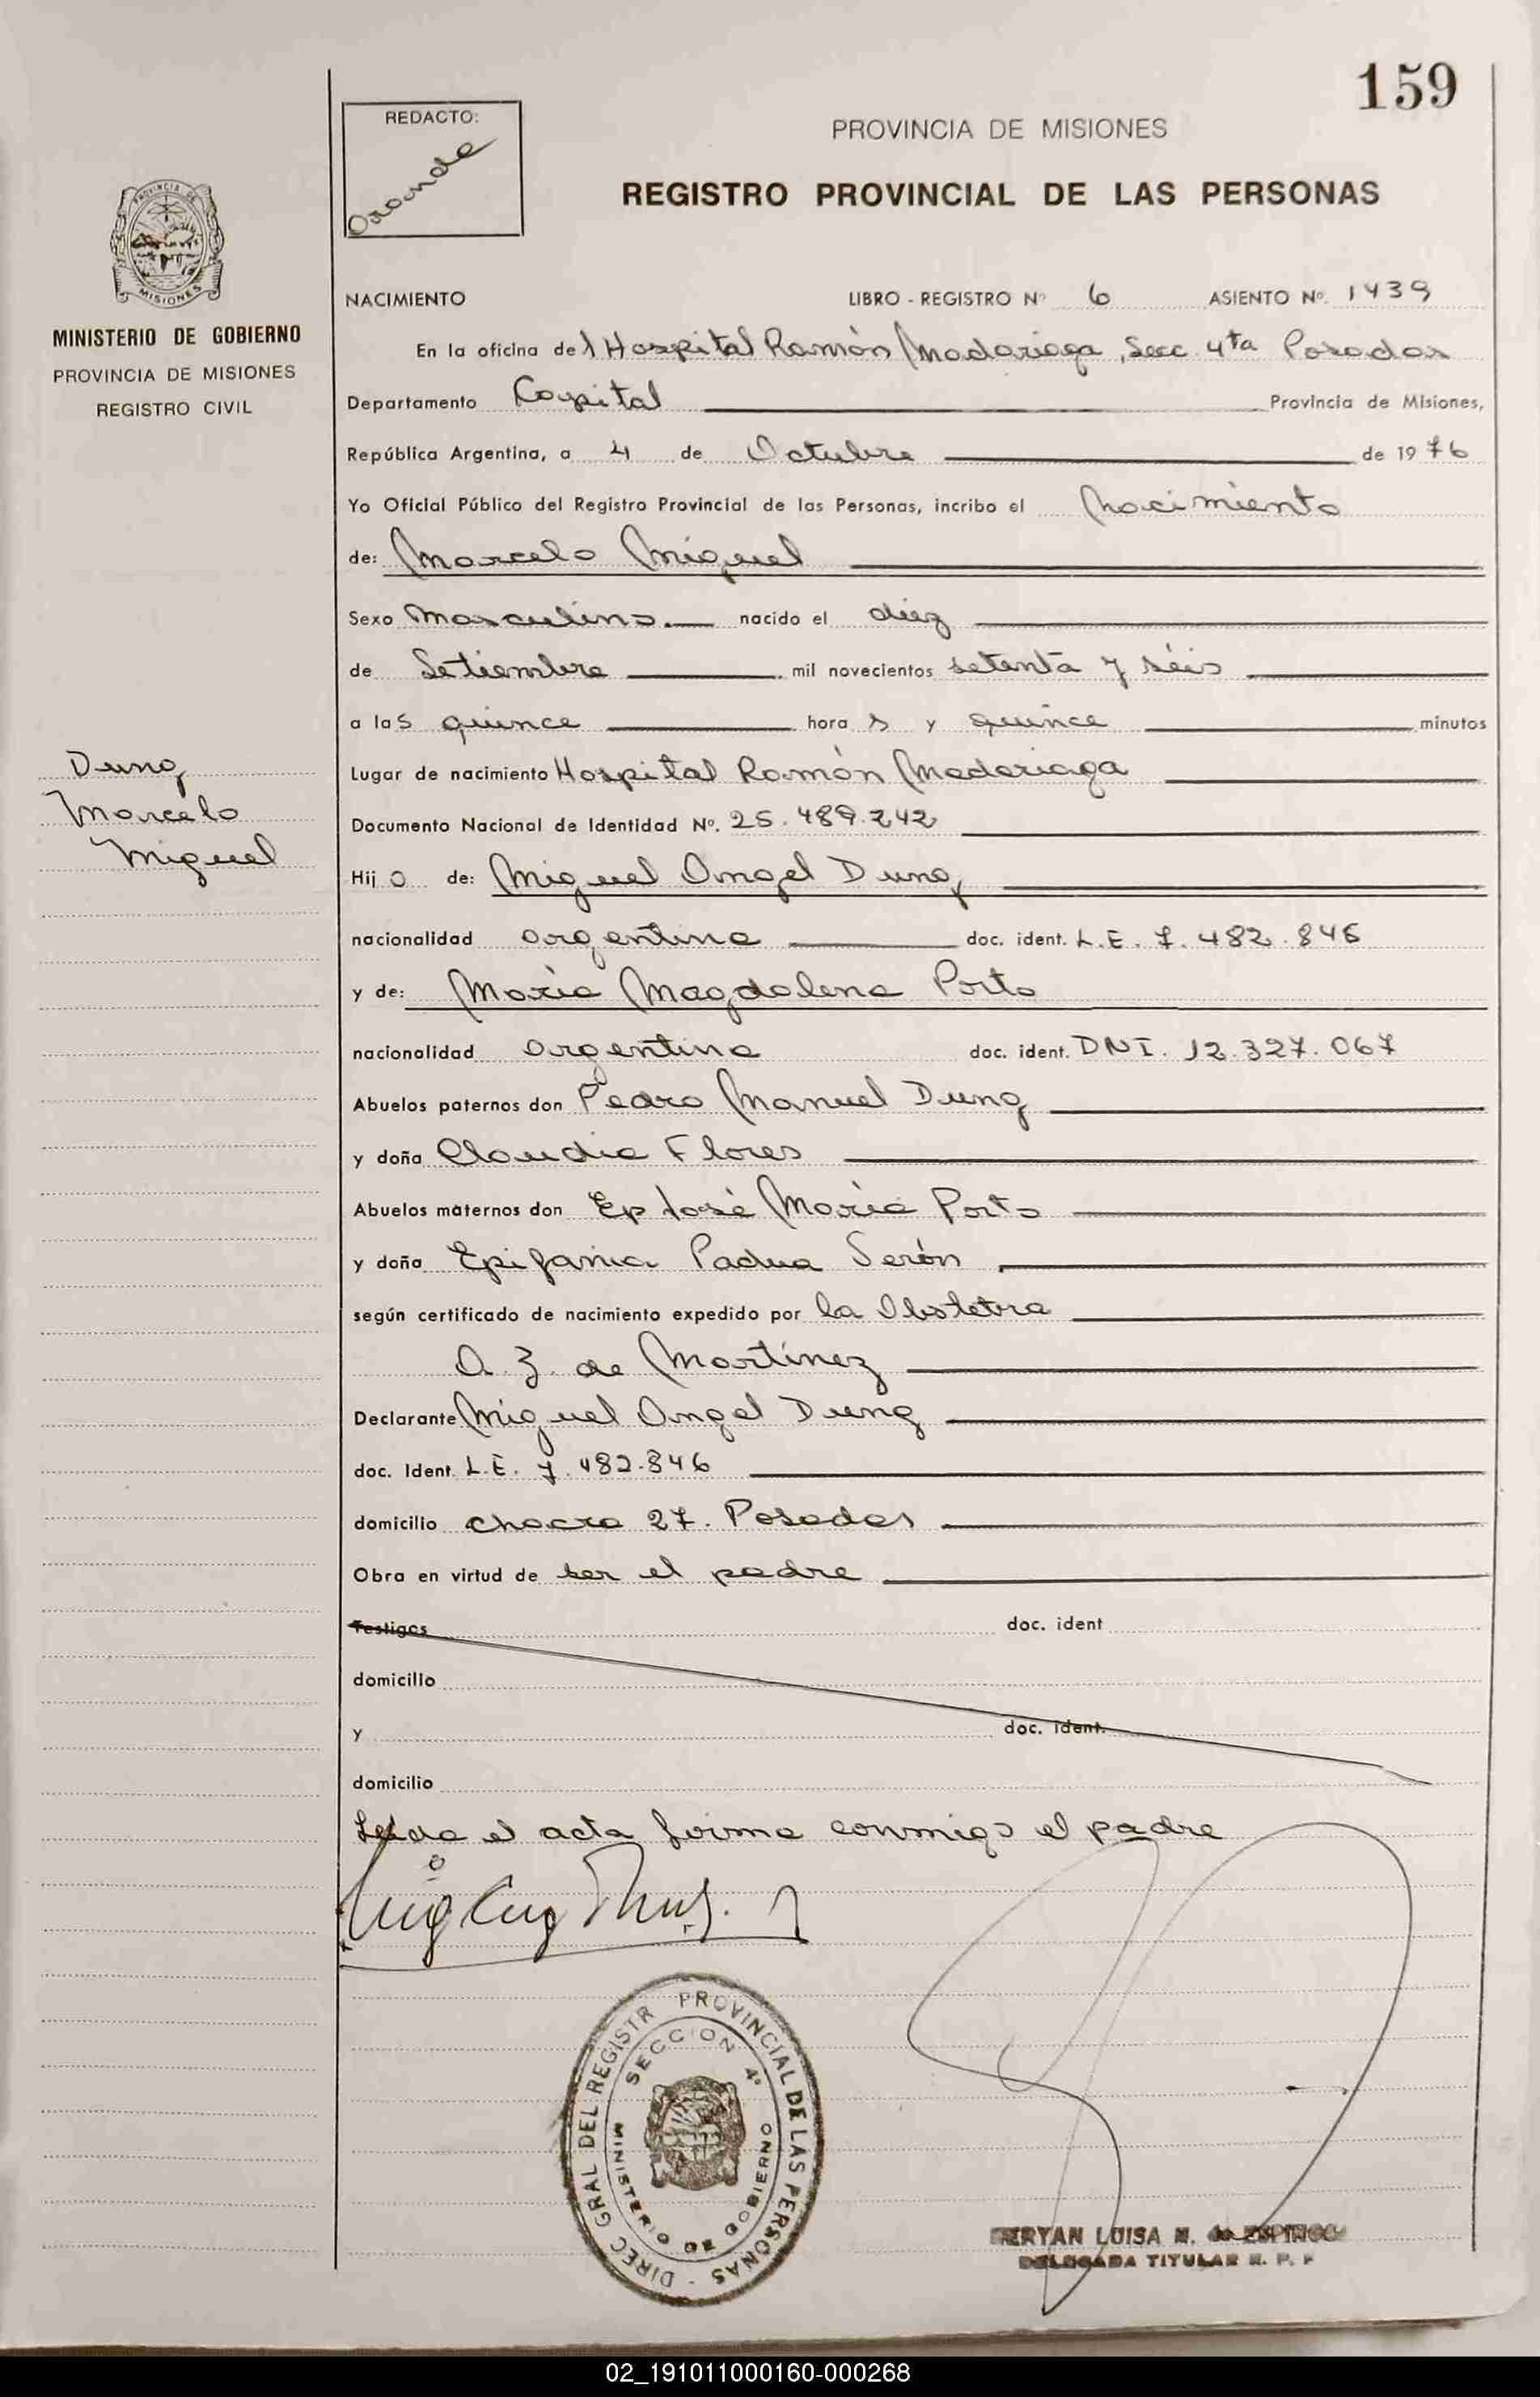 159
REDACTO:
PROVINCIA DE MISIONES
REGISTRO PROVINCIAL DE LAS PERSONAS
PROVINCIA DE
MISIONES
MINISTERIO DE GOBIERNO
PROVINCIA DE MISIONES
REGISTRO CIVIL
NACIMIENTO LIBRO - REGISTRO Nº 6 ASIENTO Nº. 1439
En la oficina del Hospital Ramón Madariaga, Secc. 4ta Posadas
Departamento Capital Provincia de Misiones,
República Argentina, a 4 de Octubre de 1976
Yo Oficial Público del Registro Provincial de las Personas, incribo el Nacimiento
de: Marcelo Miguel
Sexo Masculino. nacido el diez
de Setiembre mil novecientos setenta y séis
a las quince horas y quince minutos
Dung
Marcelo
Miguel
Lugar de nacimiento Hospital Ramón Madariaga
Documento Nacional de Identidad Nº. 25.489.242
Hijo de: Miguel Angel Dung
nacionalidad argentina doc. ident. L.E. 7.482.846
y de: María Magdalena Porto
nacionalidad argentina doc. ident. DNI. 12.327.067
Abuelos paternos don Pedro Manuel Dung
y doña Claudia Flores
Abuelos maternos don Ep José María Porto
y doña Epifania Padua Serón
según certificado de nacimiento expedido por la Obstetra
A. Z. de Martínez
Declarante Miguel Angel Dung
doc. Ident. L.E. 7.482.846
domicilio chacra 27. Posadas
Obra en virtud de ser el padre
Testigos doc. ident
domicilio
y doc. ident.
domicilio
Leida el acta firma conmigo el padre
DIREC GRAL DEL REGISTR PROVINCIAL DE LAS PERSONAS
SECCION 4º
MINISTERIO DE GOBIERNO
LUISA M. de
DELEGADA TITULAR R. P. P
02_191011000160-000268